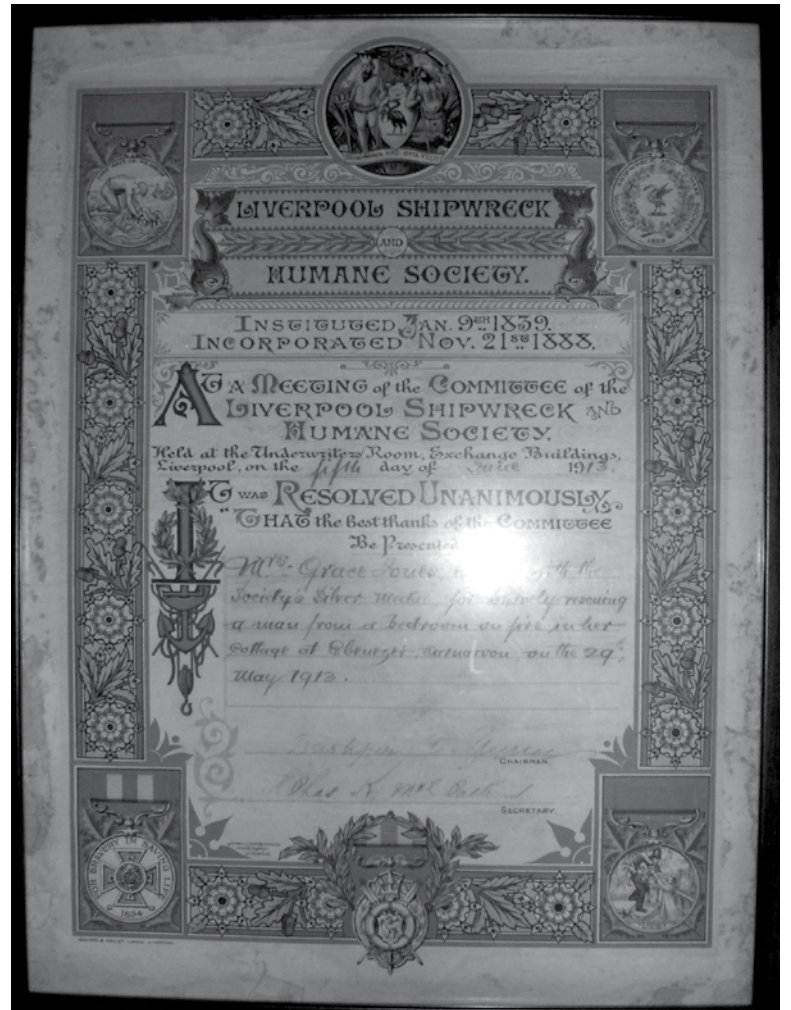 LIVERPOOL SHIPWRECK
AND
HUMANE SOCIETY.
INSTITUTED JAN. 9TH 1839.
INCORPORATED NOV. 21ST 1888.
AT A MEETING of the COMMITTEE of the
LIVERPOOL SHIPWRECK AND
HUMANE SOCIETY.
Held at the Underwriters Room, Exchange Buildings,
Liverpool, on the fifth day of June 1913.
IT WAS RESOLVED UNANIMOUSLY,
"THAT the Best thanks of the COMMITTEE
Be Presented
Mrs. Grace Jones, with the
Society's Silver Medal for bravely rescuing
a man from a bedroom on fire in her
Cottage at Ebenezer, Carnarvon, on the 29th
May 1913.
CHAIRMAN.
Chas K.
SECRETARY.
FOR BRAVERY IN SAVING LIFE
1894